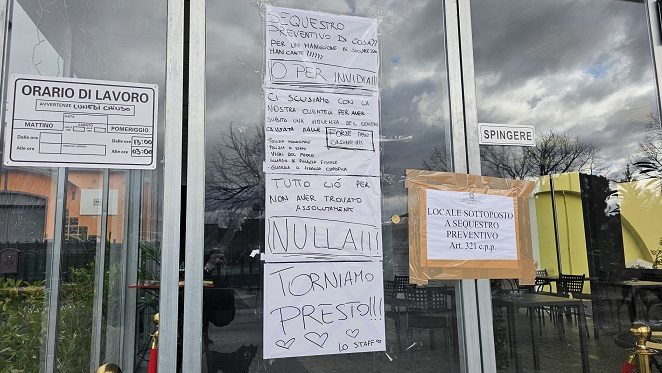 ORARIO DI LAVORO
AVVERTENZE LUNEDÌ CHIUSO
DATA
MATTINO
POMERIGGIO
Dalle ore
Alle ore
Dalle ore 13:00
Alle ore 03:00
SEQUESTRO
PREVENTIVO DI COSA??
PER UN MANIGLIONE DI SICUREZZA
MANCANTE??????
O PER INVIDIA!!!
CI SCUSIAMO CON LA
NOSTRA CLIENTELA PER AVER
SUBITO UNA VIOLENZA DEL GENERE
CAUSATA DALLE FORZE DELL'
ORDINE!!!
VIGILI DEL FUOCO
TUTTO CIÓ PER
NON AVER TROVATO
ASSOLUTAMENTE
NULLA!!!
TORNIAMO
PRESTO!!!
LO STAFF
SPINGERE
LOCALE SOTTOPOSTO
A SEQUESTRO
PREVENTIVO
Art. 321 c.p.p.